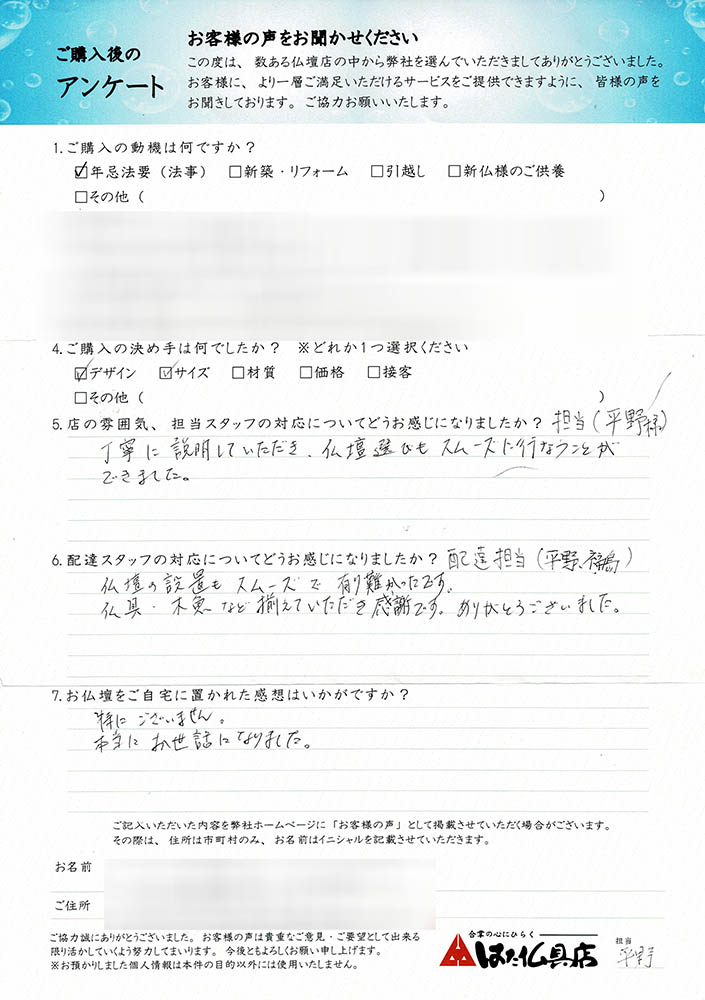 ご購入後の
アンケート
お客様の声をお聞かせください
この度は、数ある仏壇店の中から弊社を選んでいただきましてありがとうございました。
お客様に、より一層ご満足いただけるサービスをご提供できますように、皆様の声を
お聞きしております。ご協力お願いいたします。
1.ご購入の動機は何ですか？
☑年忌法要（法事） □新築・リフォーム □引越し □新仏様のご供養
□その他（ ）
4.ご購入の決め手は何でしたか？ ※どれか1つ選択ください
☑デザイン ☑サイズ □材質 □価格 □接客
□その他（ ）
5.店の雰囲気、担当スタッフの対応についてどうお感じになりましたか？ 担当（平野様）
丁寧に説明していただき、仏壇選びもスムーズに行なうことが
できました。
6.配達スタッフの対応についてどうお感じになりましたか？ 配達担当（平野、福島）
仏壇の設置もスムーズで有り難かったです。
仏具・木魚など揃えていただき感謝です。ありがとうございました。
7.お仏壇をご自宅に置かれた感想はいかがですか？
特にございません。
本当にお世話になりました。
ご記入いただいた内容を弊社ホームページに「お客様の声」として掲載させていただく場合がございます。
その際は、住所は市町村のみ、お名前はイニシャルを記載させていただきます。
お名前
ご住所
ご協力誠にありがとうございました。お客様の声は貴重なご意見・ご要望として出来る
限り活かしていくよう努力してまいります。今後ともよろしくお願い申し上げます。
※お預かりしました個人情報は本件の目的以外には使用いたしません。
合掌の心にひらく
はた仏具店
担当
平野